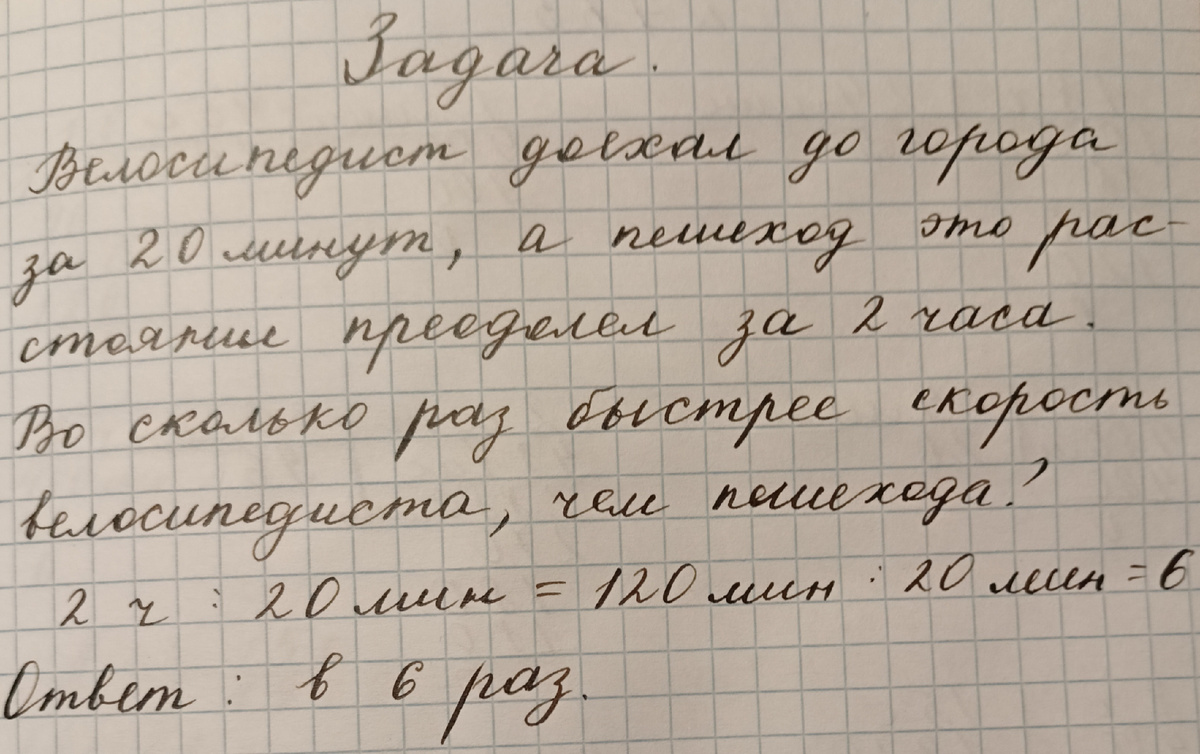 Задача.
Велосипедист доехал до города
за 20 минут, а пешеход это рас-
стояние преодолел за 2 часа.
Во сколько раз быстрее скорость
велосипедиста, чем пешехода?
2 ч : 20 мин = 120 мин : 20 мин = 6
Ответ : в 6 раз.